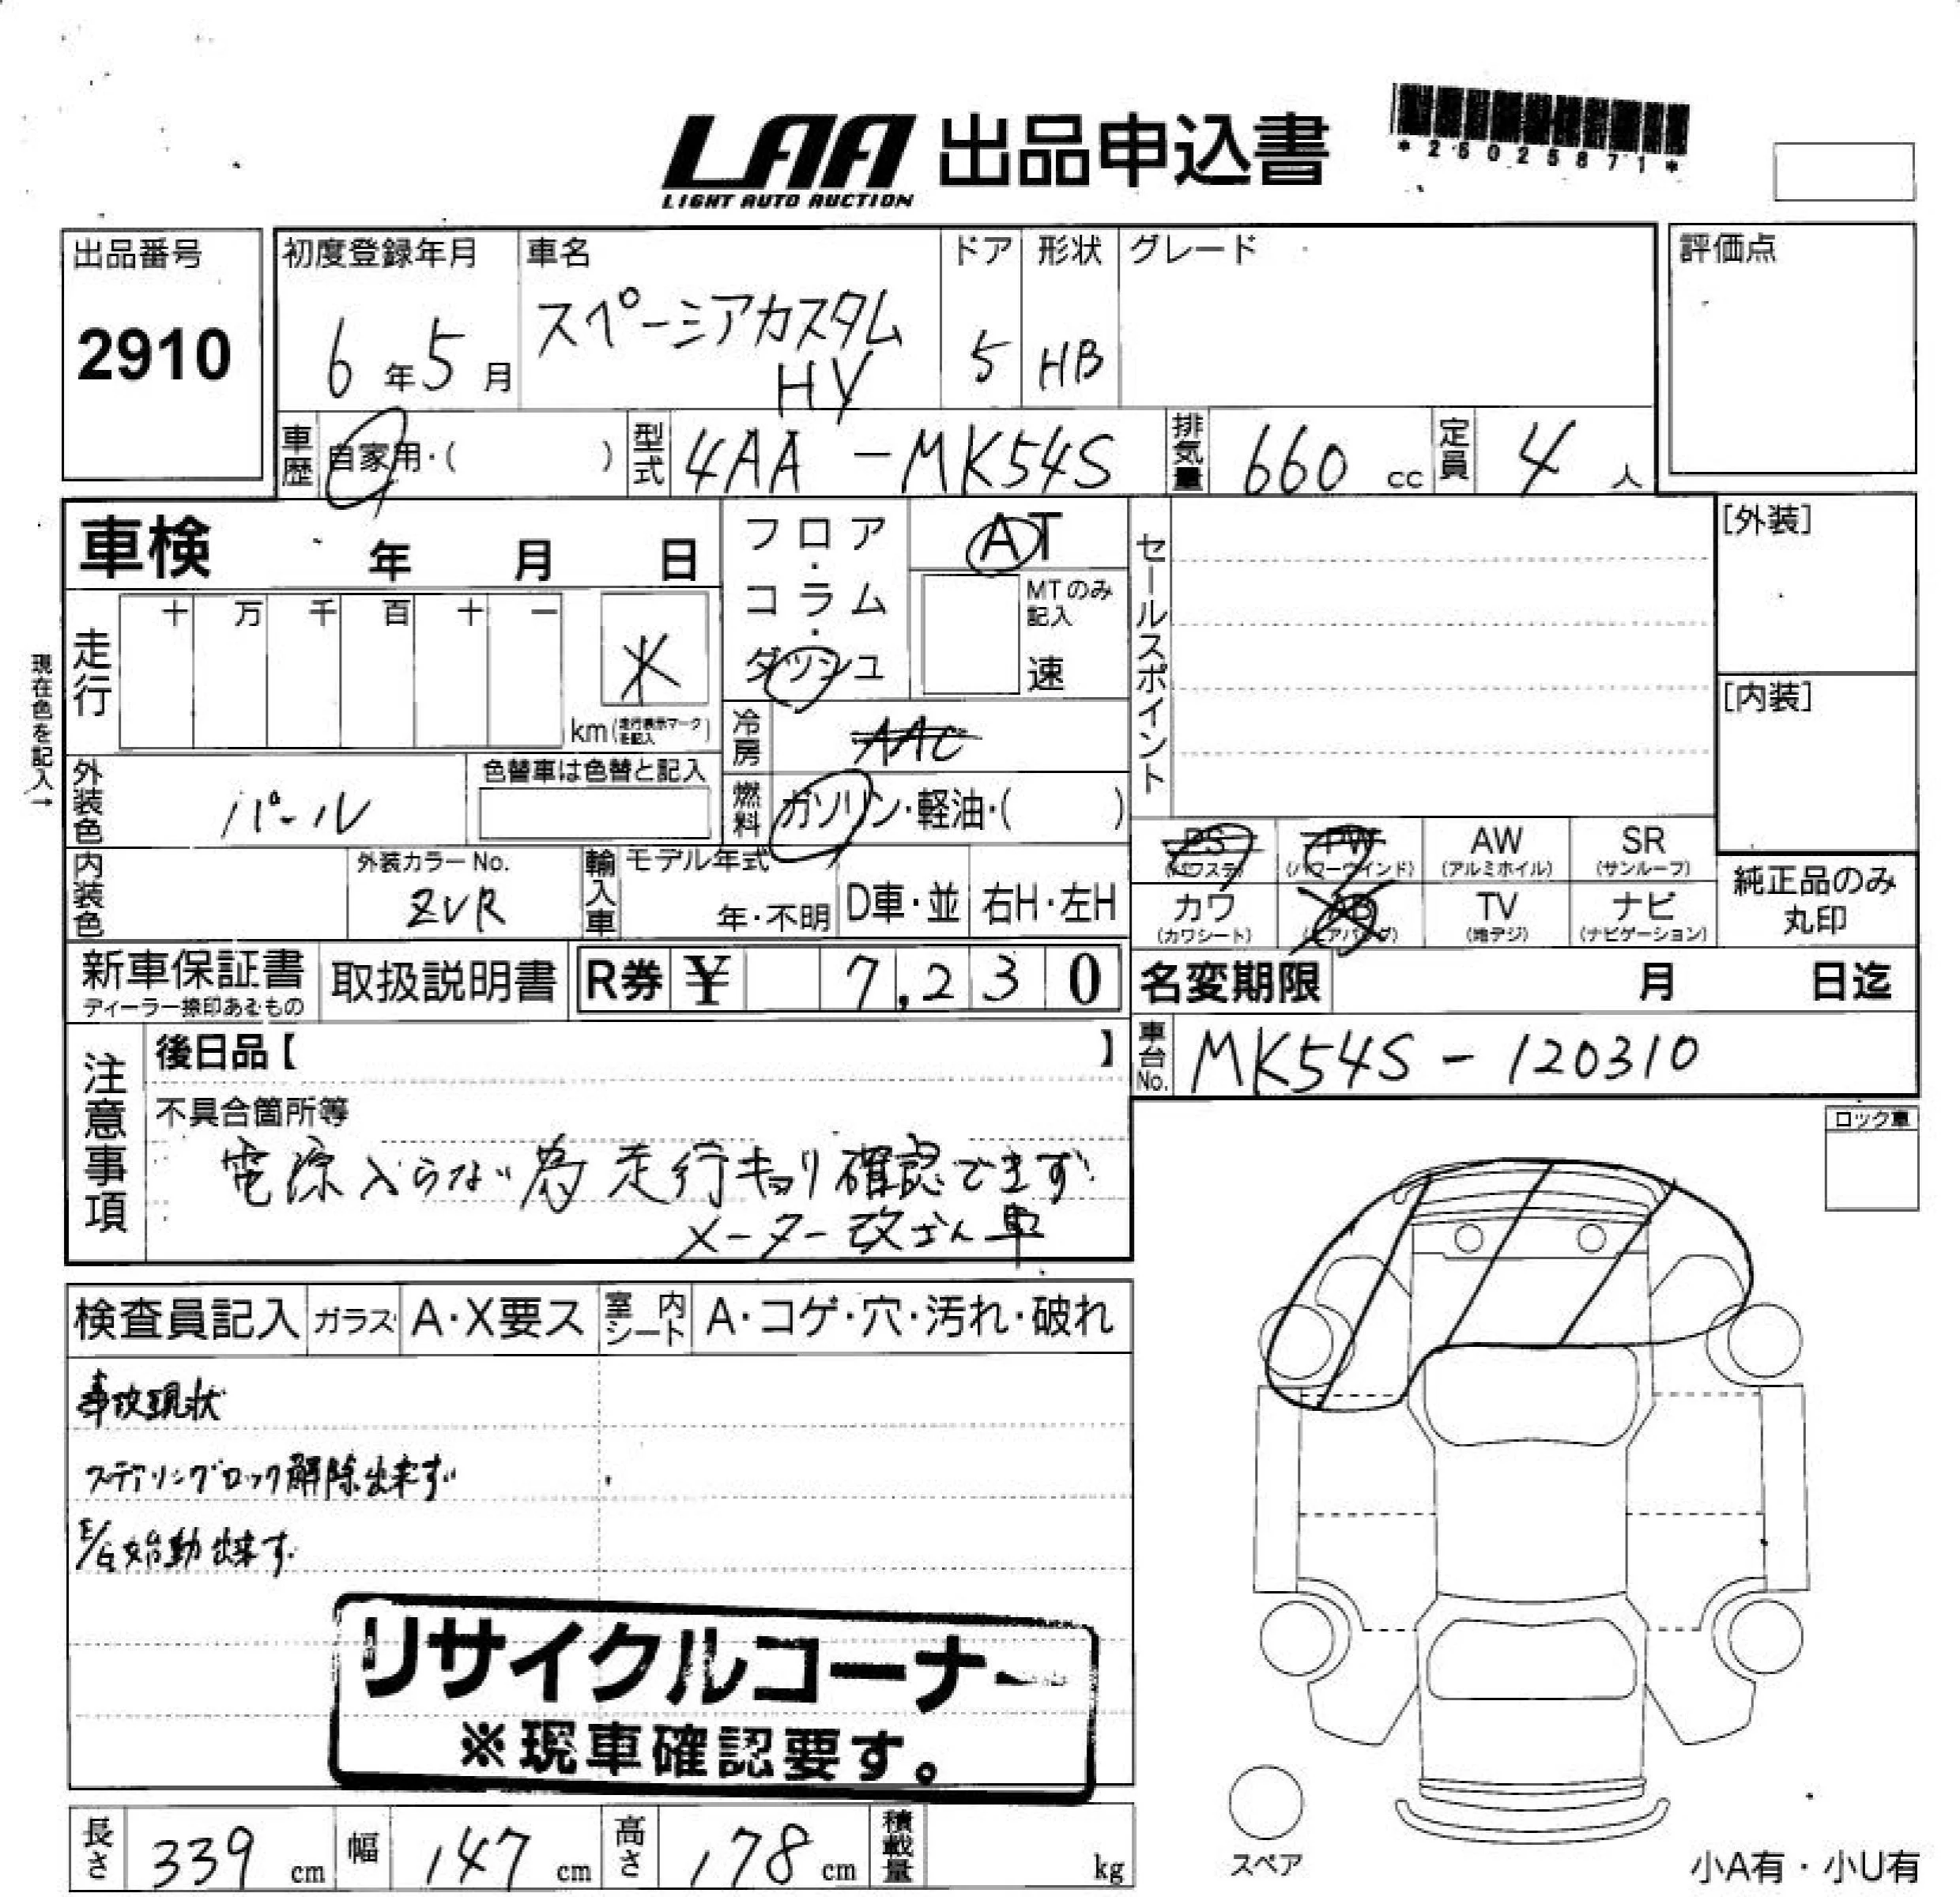 LAA 出品申込書
LIGHT AUTO AUCTION
*25025871*
出品番号
2910
初度登録年月
6年5月
車名
スペーシアカスタム
HV
ドア
5
形状
HB
グレード
評価点
車歴 自家用・( )
型式 4AA-MK54S
排気量 660 cc
定員 4 人
車検 年 月 日
フロア・コラム・ダッシュ
AT
MTのみ記入
速
セールスポイント
[外装]
[内装]
現在色を記入→
走行 十 万 千 百 十 一
km(走行表示マークを記入)
*
冷房 AAC
外装色 パール
色替車は色替と記入
燃料 ガソリン・軽油・( )
内装色
外装カラーNo.
ZVR
輸入車 モデル年式
年・不明 D車・並 右H・左H
PS (パワステ)
PW (パワーウインド)
AW (アルミホイル)
SR (サンルーフ)
カワ (カワシート)
AB (エアバッグ)
TV (地デジ)
ナビ (ナビゲーション)
純正品のみ
丸印
新車保証書
ディーラー捺印あるもの
取扱説明書
R券 ¥ 7,230
名変期限 月 日迄
車台No. MK54S-120310
注意事項
後日品【 】
不具合箇所等
電源入らない為 走行キョリ確認できず
メーター改ざん車
ロック車
検査員記入 ガラス A・X要ス 室内シート A・コゲ・穴・汚れ・破れ
事故現状
ステアリングロック解除出来ず
E/G始動出来ず
リサイクルコーナー
※現車確認要す。
長さ 339 cm 幅 147 cm 高さ 178 cm 積載量 kg
スペア
小A有・小U有